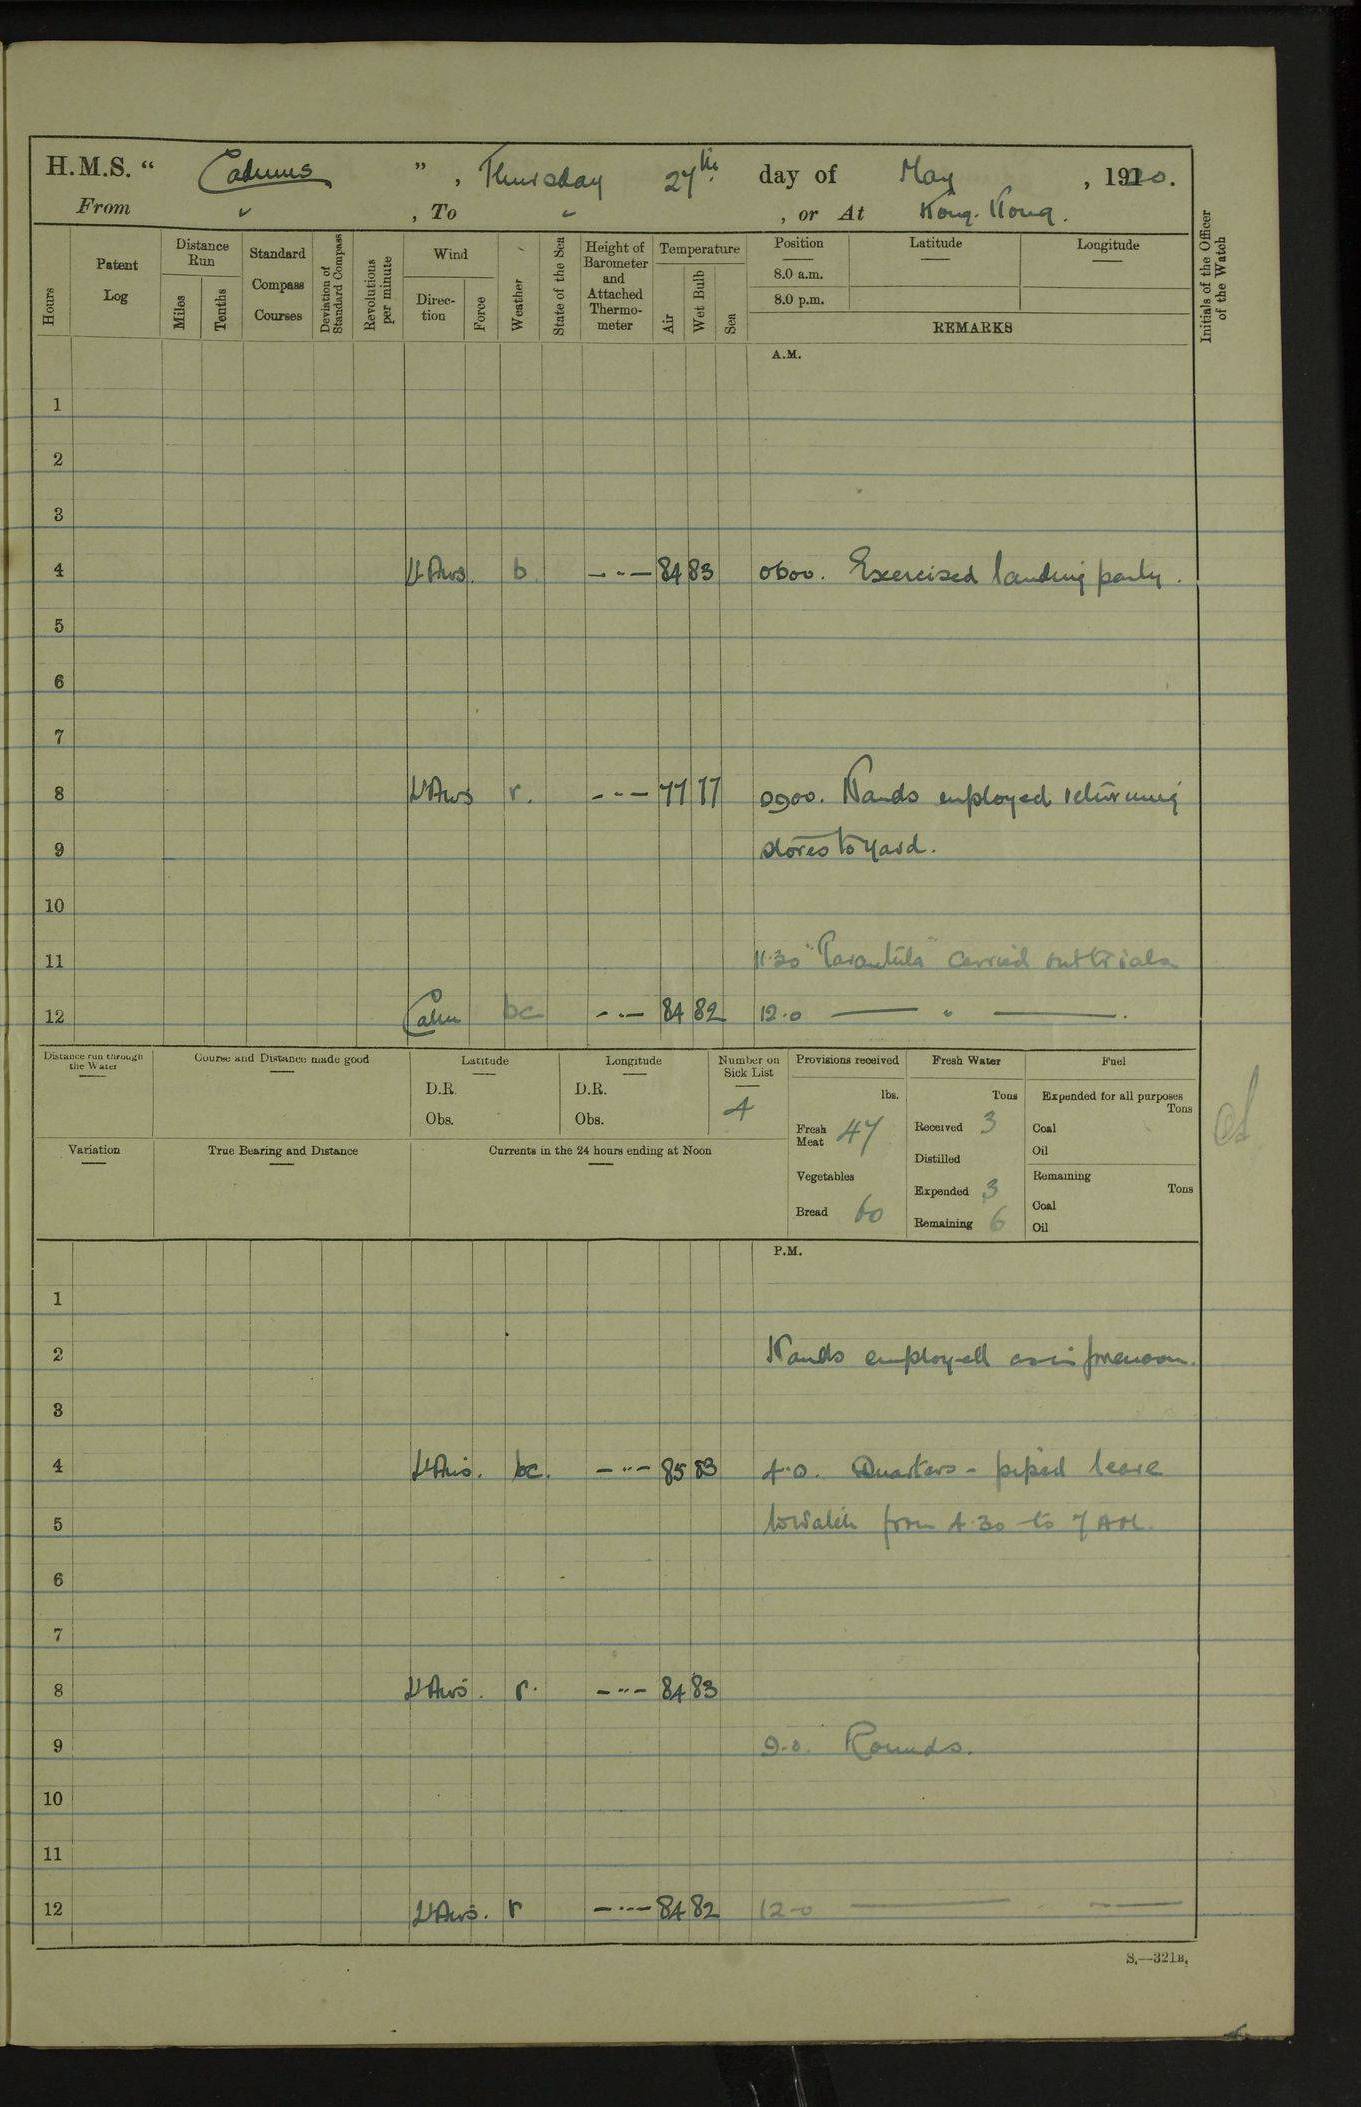 H.M.S. “ Cadmus ” , Thursday 27th. day of May , 1920.
From " , To " , or At Hong. Kong.
Hours
Patent Log
Distance Run
Miles
Tenths
Standard Compass Courses
Deviation of Standard Compass
Revolutions per minute
Wind
Direction
Force
Weather
State of the Sea
Height of Barometer and Attached Thermometer
Temperature
Air
Wet Bulb
Sea
Position
Latitude
Longitude
8.0 a.m.
8.0 p.m.
REMARKS
Initials of the Officer of the Watch
A.M.
1
2
3
4 Lt Airs. b. - - - 84 83 0600. Exercised landing party.
5
6
7
8 Lt Airs r. - - - 77 77 0900. Hands employed returning
9 stores to yard.
10
11 11.30 "Tarantula" carried out trials
12 Calm bc - - - 84 82 12.0 — " — .
Distance run through the Water
Course and Distance made good
Latitude
D.R.
Obs.
Longitude
D.R.
Obs.
Number on Sick List
4
Provisions received
lbs.
Fresh Meat 47
Vegetables
Bread 60
Fresh Water
Tons
Received 3
Distilled
Expended 3
Remaining 6
Fuel
Expended for all purposes
Tons
Coal
Oil
Remaining
Tons
Coal
Oil
Variation
True Bearing and Distance
Currents in the 24 hours ending at Noon
P.M.
1
2 Hands employed as in forenoon.
3
4 Lt Airs. bc. - - - 85 83 4.0. Quarters - piped leave
5 to watch from 4.30 to 7 AM.
6
7
8 Lt Airs. r. - - - 84 83
9 9.0. Rounds.
10
11
12 Lt Airs. r - - - 84 82 12-0 — —
S.—321B.